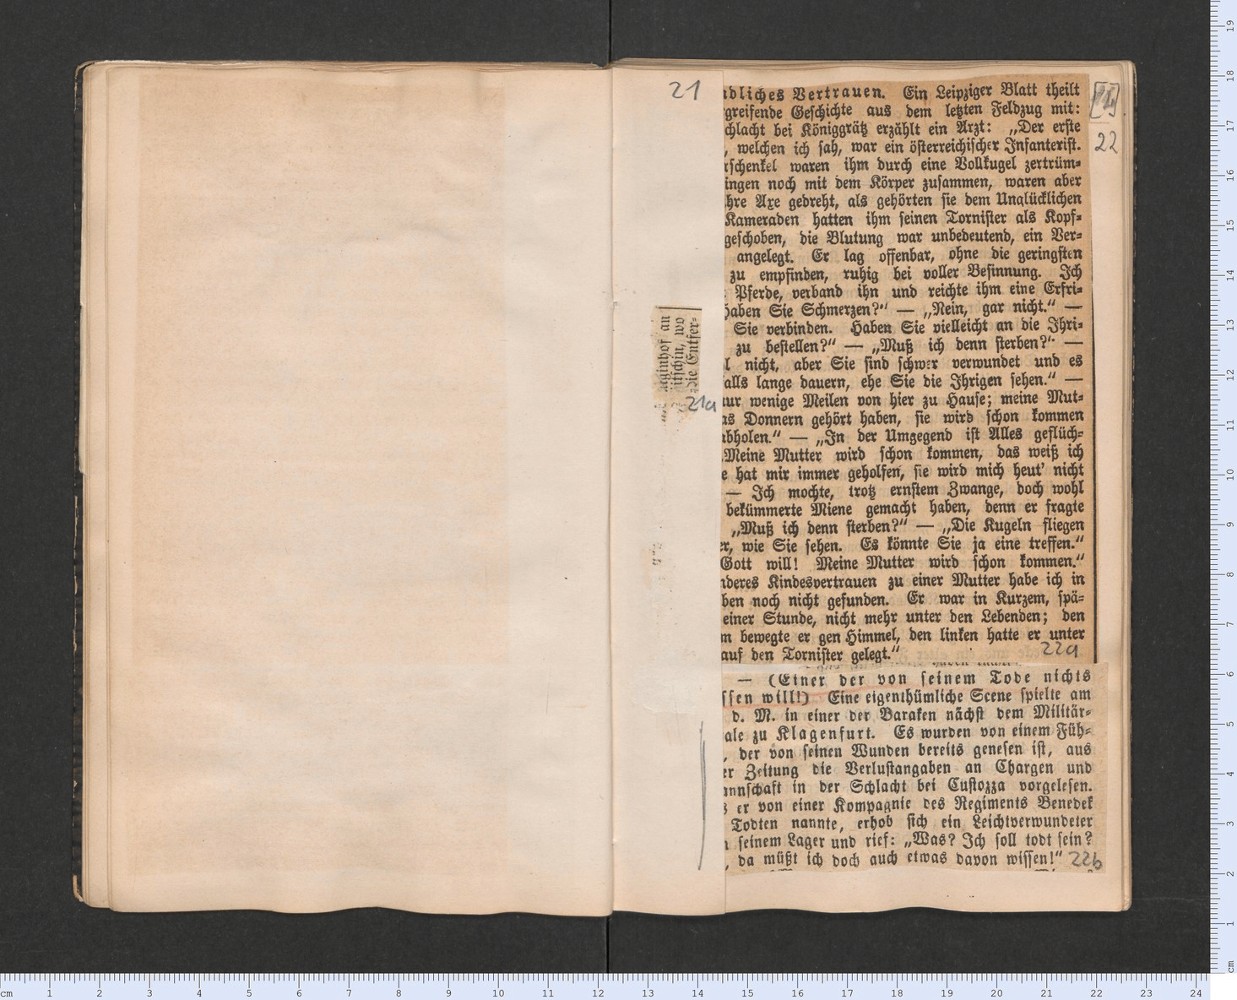 21
eginthof an
itschin, wo
die Entfer-
21a
[21]
22
dliches Vertrauen. Ein Leipziger Blatt theilt
greifende Geschichte aus dem letzten Feldzug mit:
chlacht bei Königgrätz erzählt ein Arzt: „Der erste
, welchen ich sah, war ein österreichischer Infanterist.
rschenkel waren ihm durch eine Vollkugel zertrüm-
ingen noch mit dem Körper zusammen, waren aber
hre Axe gedreht, als gehörten sie dem Unglücklichen
Kameraden hatten ihm seinen Tornister als Kopf-
geschoben, die Blutung war unbedeutend, ein Ver-
angelegt. Er lag offenbar, ohne die geringsten
zu empfinden, ruhig bei voller Besinnung. Ich
Pferde, verband ihn und reichte ihm eine Erfri-
haben Sie Schmerzen?“ — „Nein, gar nicht.“ —
Sie verbinden. Haben Sie vielleicht an die Ihri-
zu bestellen?“ — „Muß ich denn sterben?“ —
l nicht, aber Sie sind schwer verwundet und es
alls lange dauern, ehe Sie die Ihrigen sehen.“ —
nur wenige Meilen von hier zu Hause; meine Mut-
as Donnern gehört haben, sie wird schon kommen
abholen.“ — „In der Umgegend ist Alles geflüch-
Meine Mutter wird schon kommen, das weiß ich
e hat mir immer geholfen, sie wird mich heut' nicht
— Ich mochte, trotz ernstem Zwange, doch wohl
bekümmerte Miene gemacht haben, denn er fragte
„Muß ich denn sterben?“ — „Die Kugeln fliegen
er, wie Sie sehen. Es könnte Sie ja eine treffen.“
Gott will! Meine Mutter wird schon kommen.“
nderes Kindesvertrauen zu einer Mutter habe ich in
ben noch nicht gefunden. Er war in Kurzem, spä-
einer Stunde, nicht mehr unter den Lebenden; den
m bewegte er gen Himmel, den linken hatte er unter
auf den Tornister gelegt.“
22a
— (Einer der von seinem Tode nichts
ssen will!) Eine eigenthümliche Scene spielte am
d. M. in einer der Baraken nächst dem Militär-
ale zu Klagenfurt. Es wurden von einem Füh-
, der von seinen Wunden bereits genesen ist, aus
er Zeitung die Verlustangaben an Chargen und
annschaft in der Schlacht bei Custozza vorgelesen.
s er von einer Kompagnie des Regiments Benedek
Todten nannte, erhob sich ein Leichtverwundeter
n seinem Lager und rief: „Was? Ich soll todt sein?
, da müßt ich doch auch etwas davon wissen!“
22b